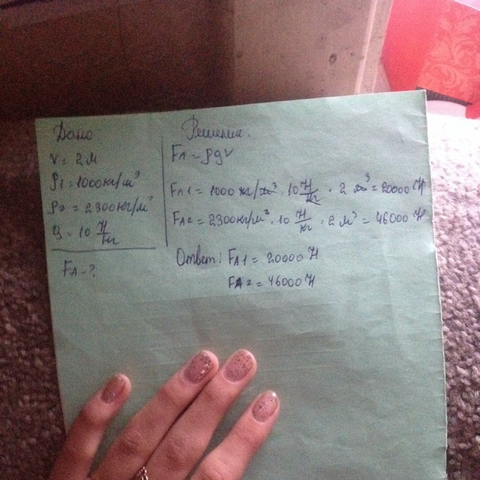 Дано
V = 2 м
ρ1 = 1000 кг/м³
ρ2 = 2300 кг/м³
g = 10 Н/кг
FA - ?
Решение.
FA = ρgV
FA1 = 1000 кг/м³ · 10 Н/кг · 2 м³ = 20000 Н
FA2 = 2300 кг/м³ · 10 Н/кг · 2 м³ = 46000 Н
Ответ: FA1 = 20000 Н
FA2 = 46000 Н